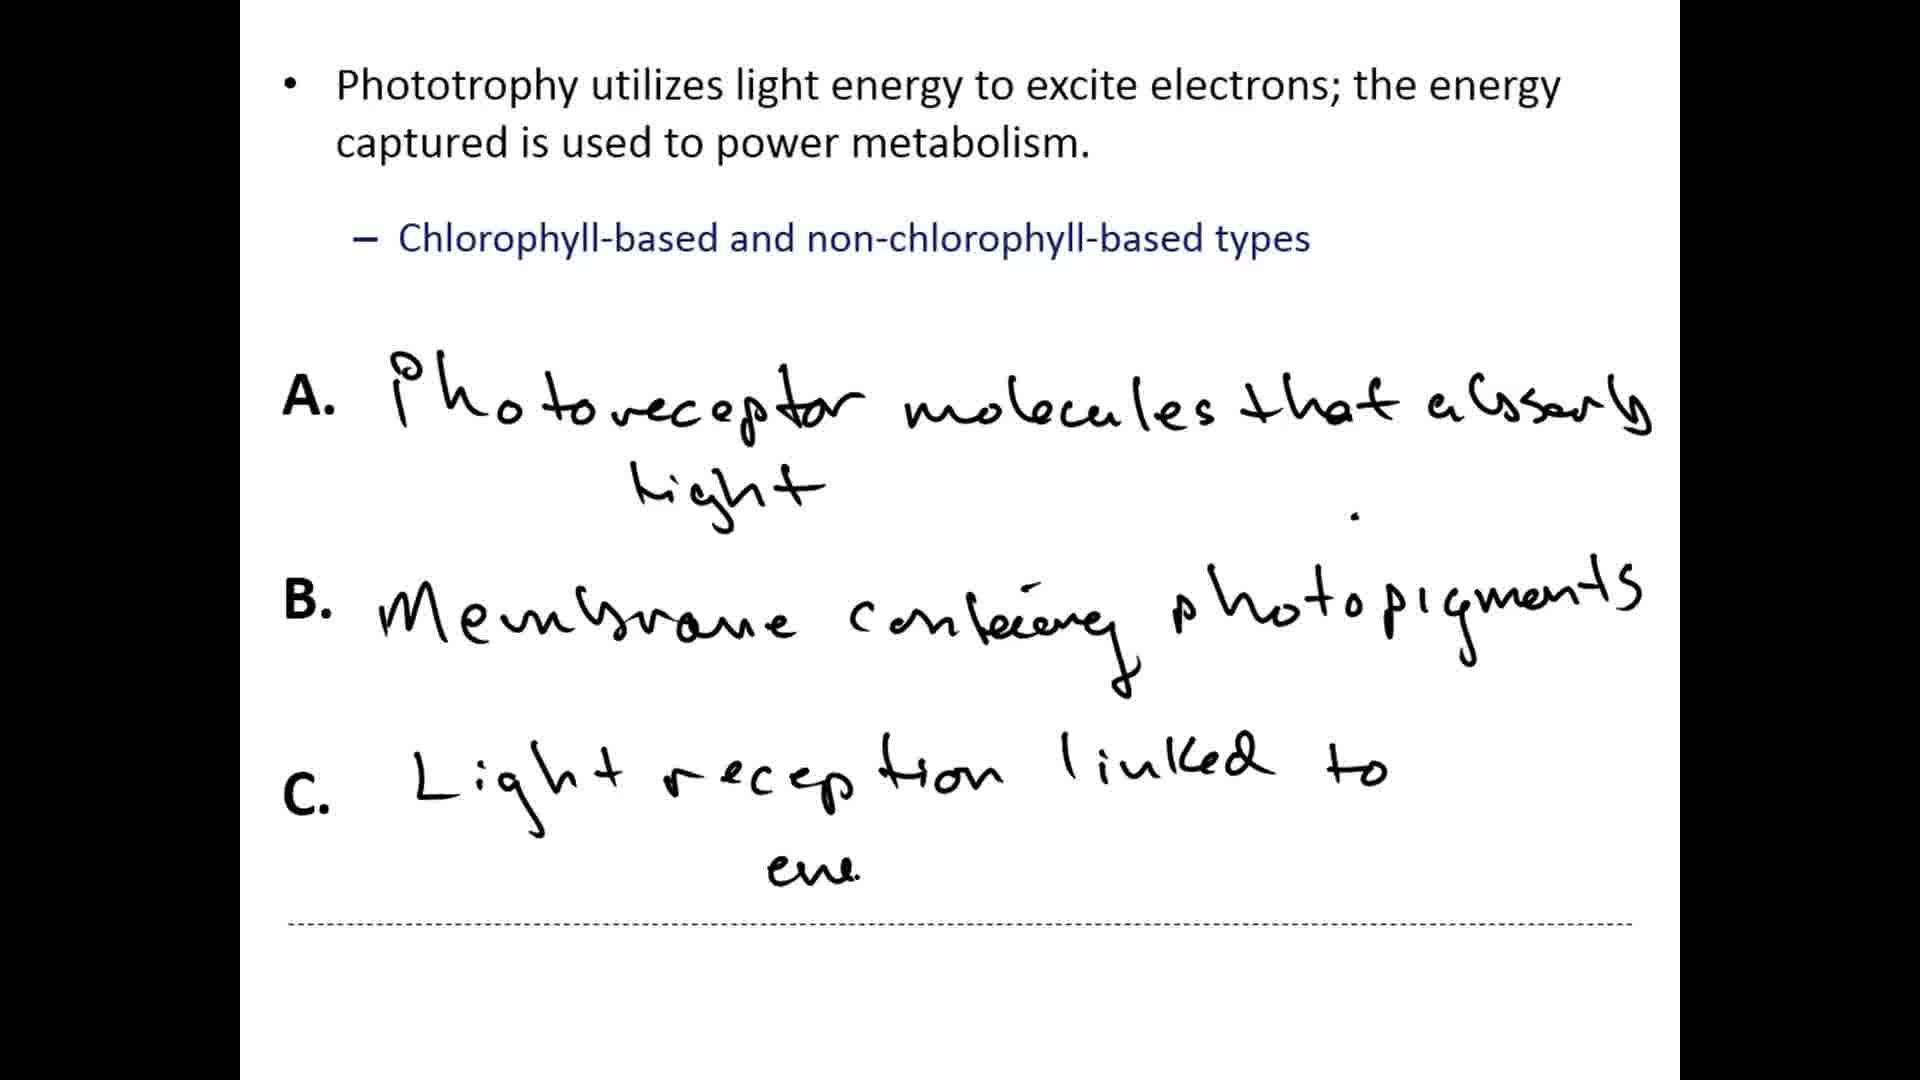 • Phototrophy utilizes light energy to excite electrons; the energy
captured is used to power metabolism.
– Chlorophyll-based and non-chlorophyll-based types
A. Photoreceptor molecules that absorb
light
B. Membrane containing photopigments
C. Light reception linked to
ene